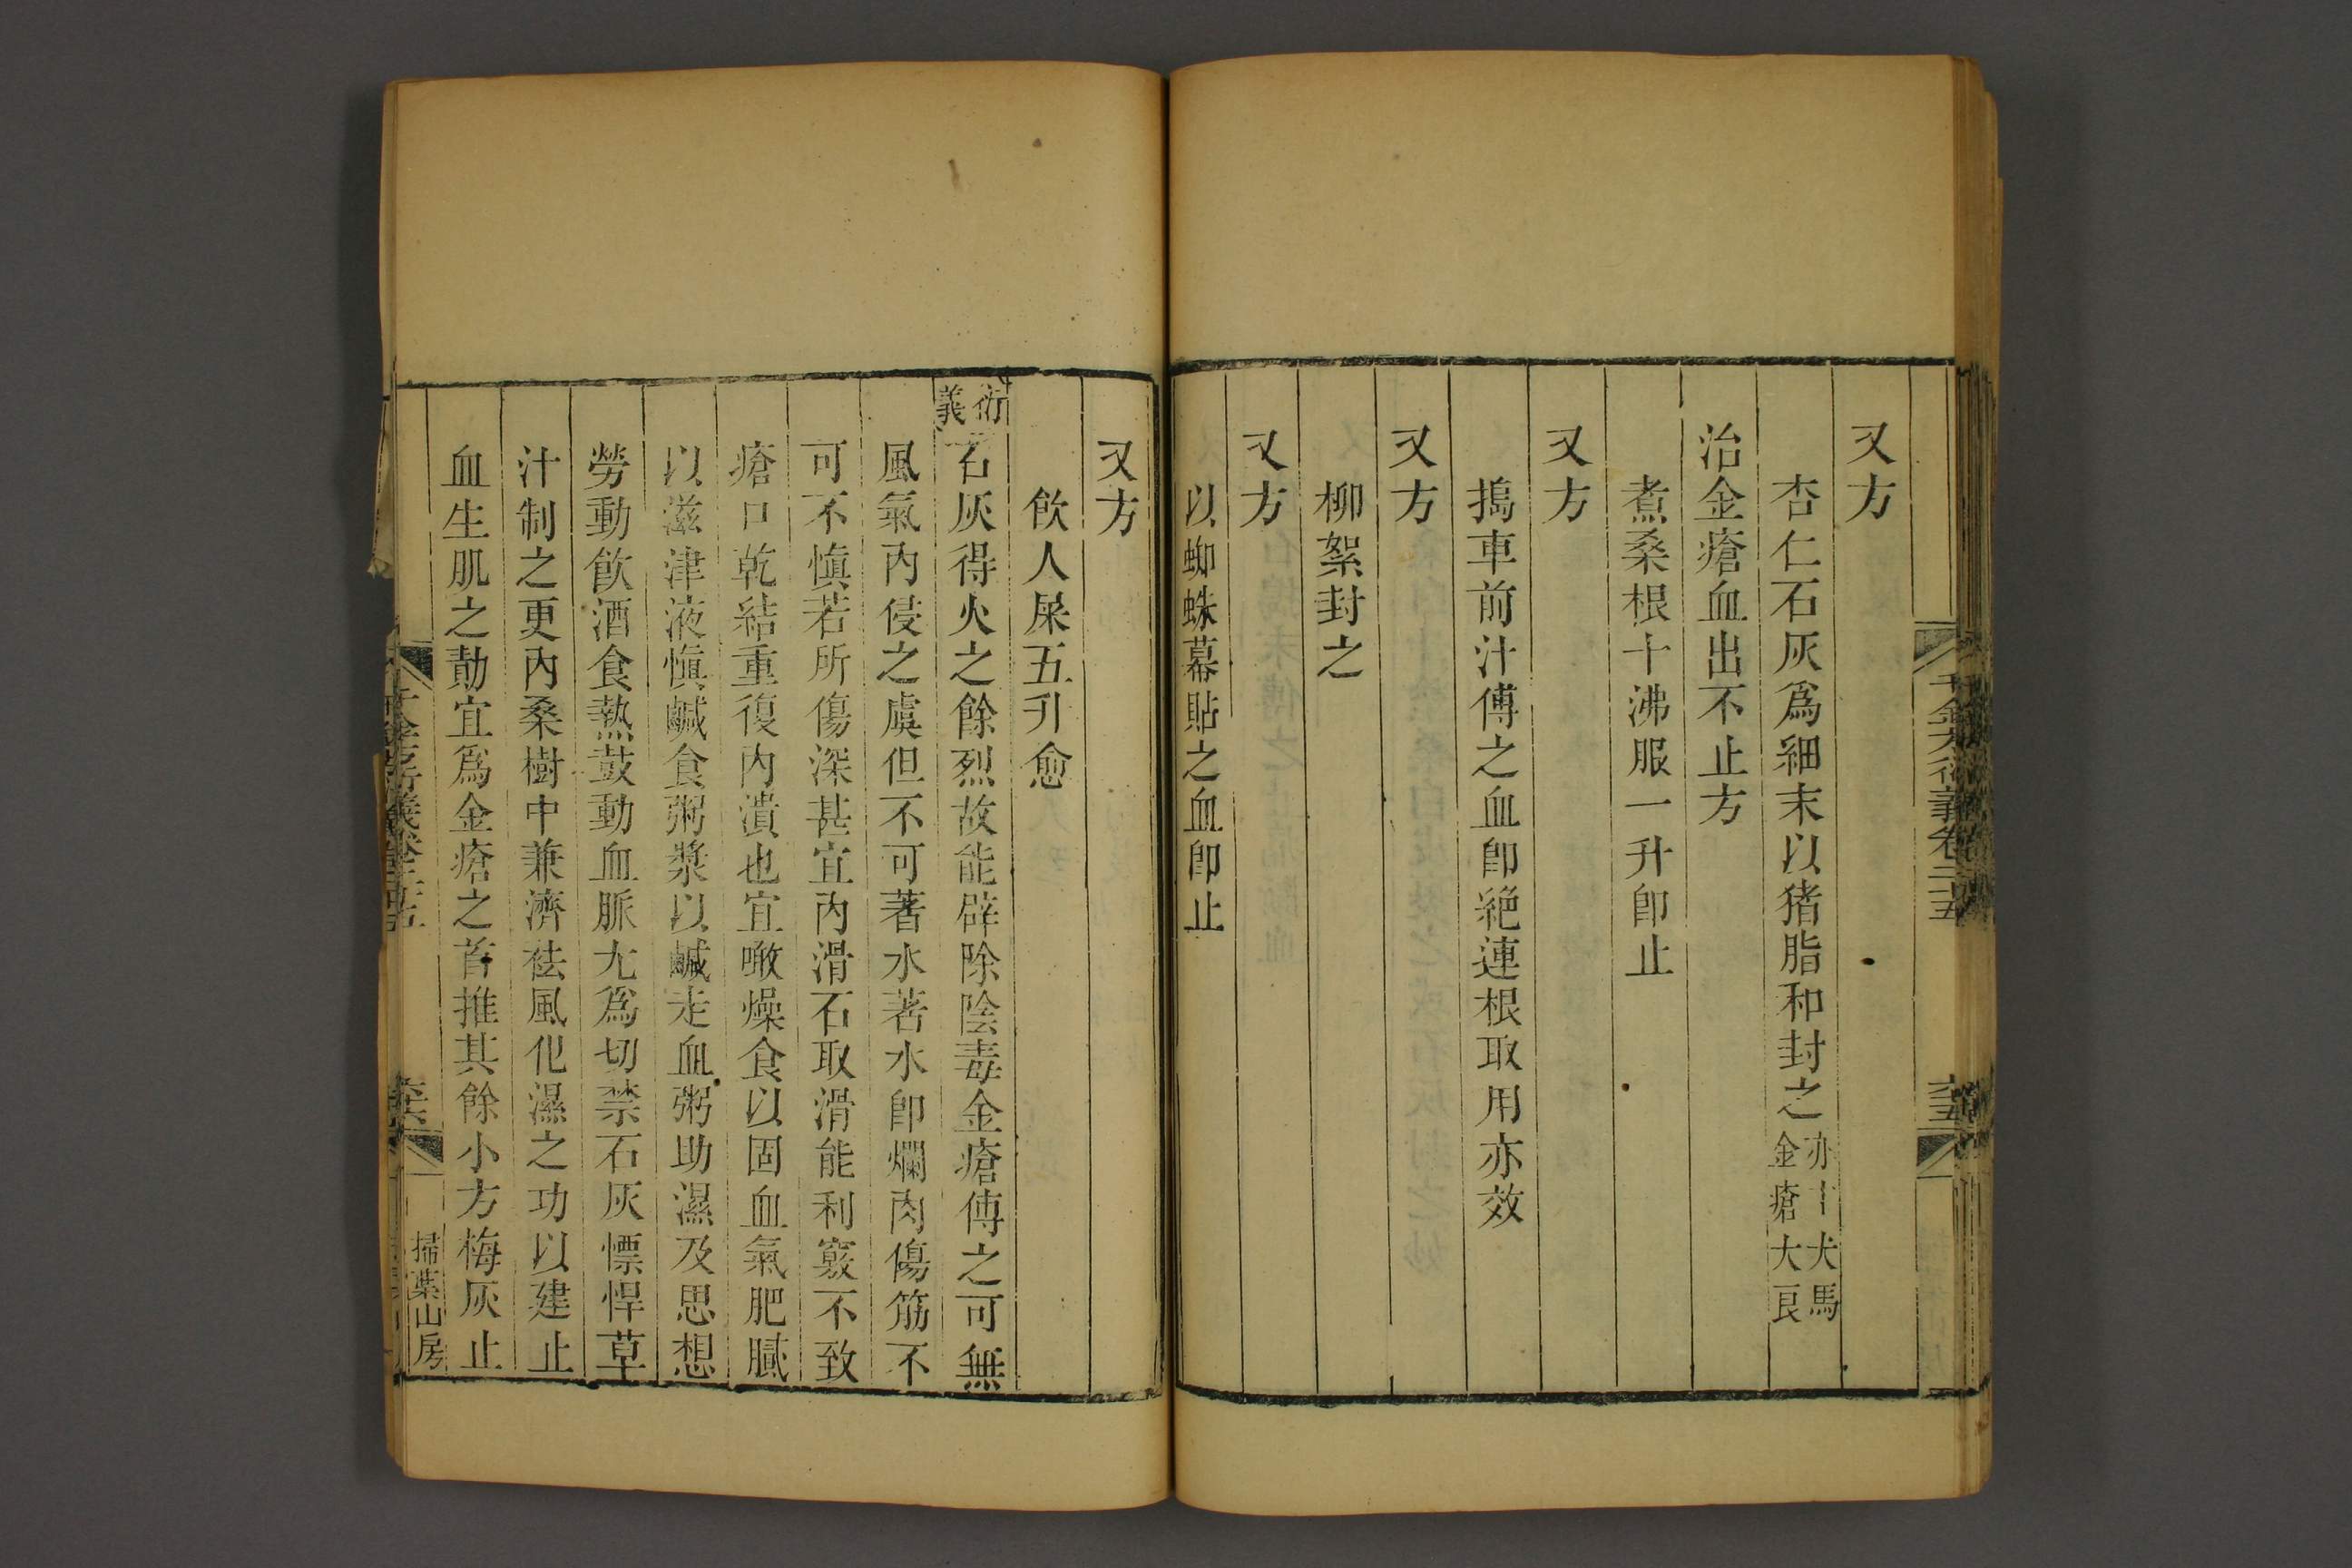 又方
杏仁石灰爲細末以猪脂和封之亦主犬馬金瘡大良
治金瘡血出不止方
煮桑根十沸服一升即止
又方
搗車前汁傅之血即絕連根取用亦效
又方
柳絮封之
又方
以蜘蛛幕貼之血即止
千金方衍義卷二十五
又方
飲人屎五升愈
衍義 石灰得火之餘烈故能辟除陰毒金瘡傅之可無
風氣內侵之虞但不可著水著水即爛肉傷筋不
可不慎若所傷深甚宜內滑石取滑能利竅不致
瘡口乾結重復內潰也宜噉燥食以固血氣肥膩
以滋津液慎鹹食粥漿以鹹走血粥助濕及思想
勞動飲酒食熱鼓動血脈尤爲切禁石灰慓悍草
汁制之更內桑樹中兼濟祛風化濕之功以建止
血生肌之勣宜爲金瘡之首推其餘小方梅灰止
千金方衍義卷二十五
掃葉山房